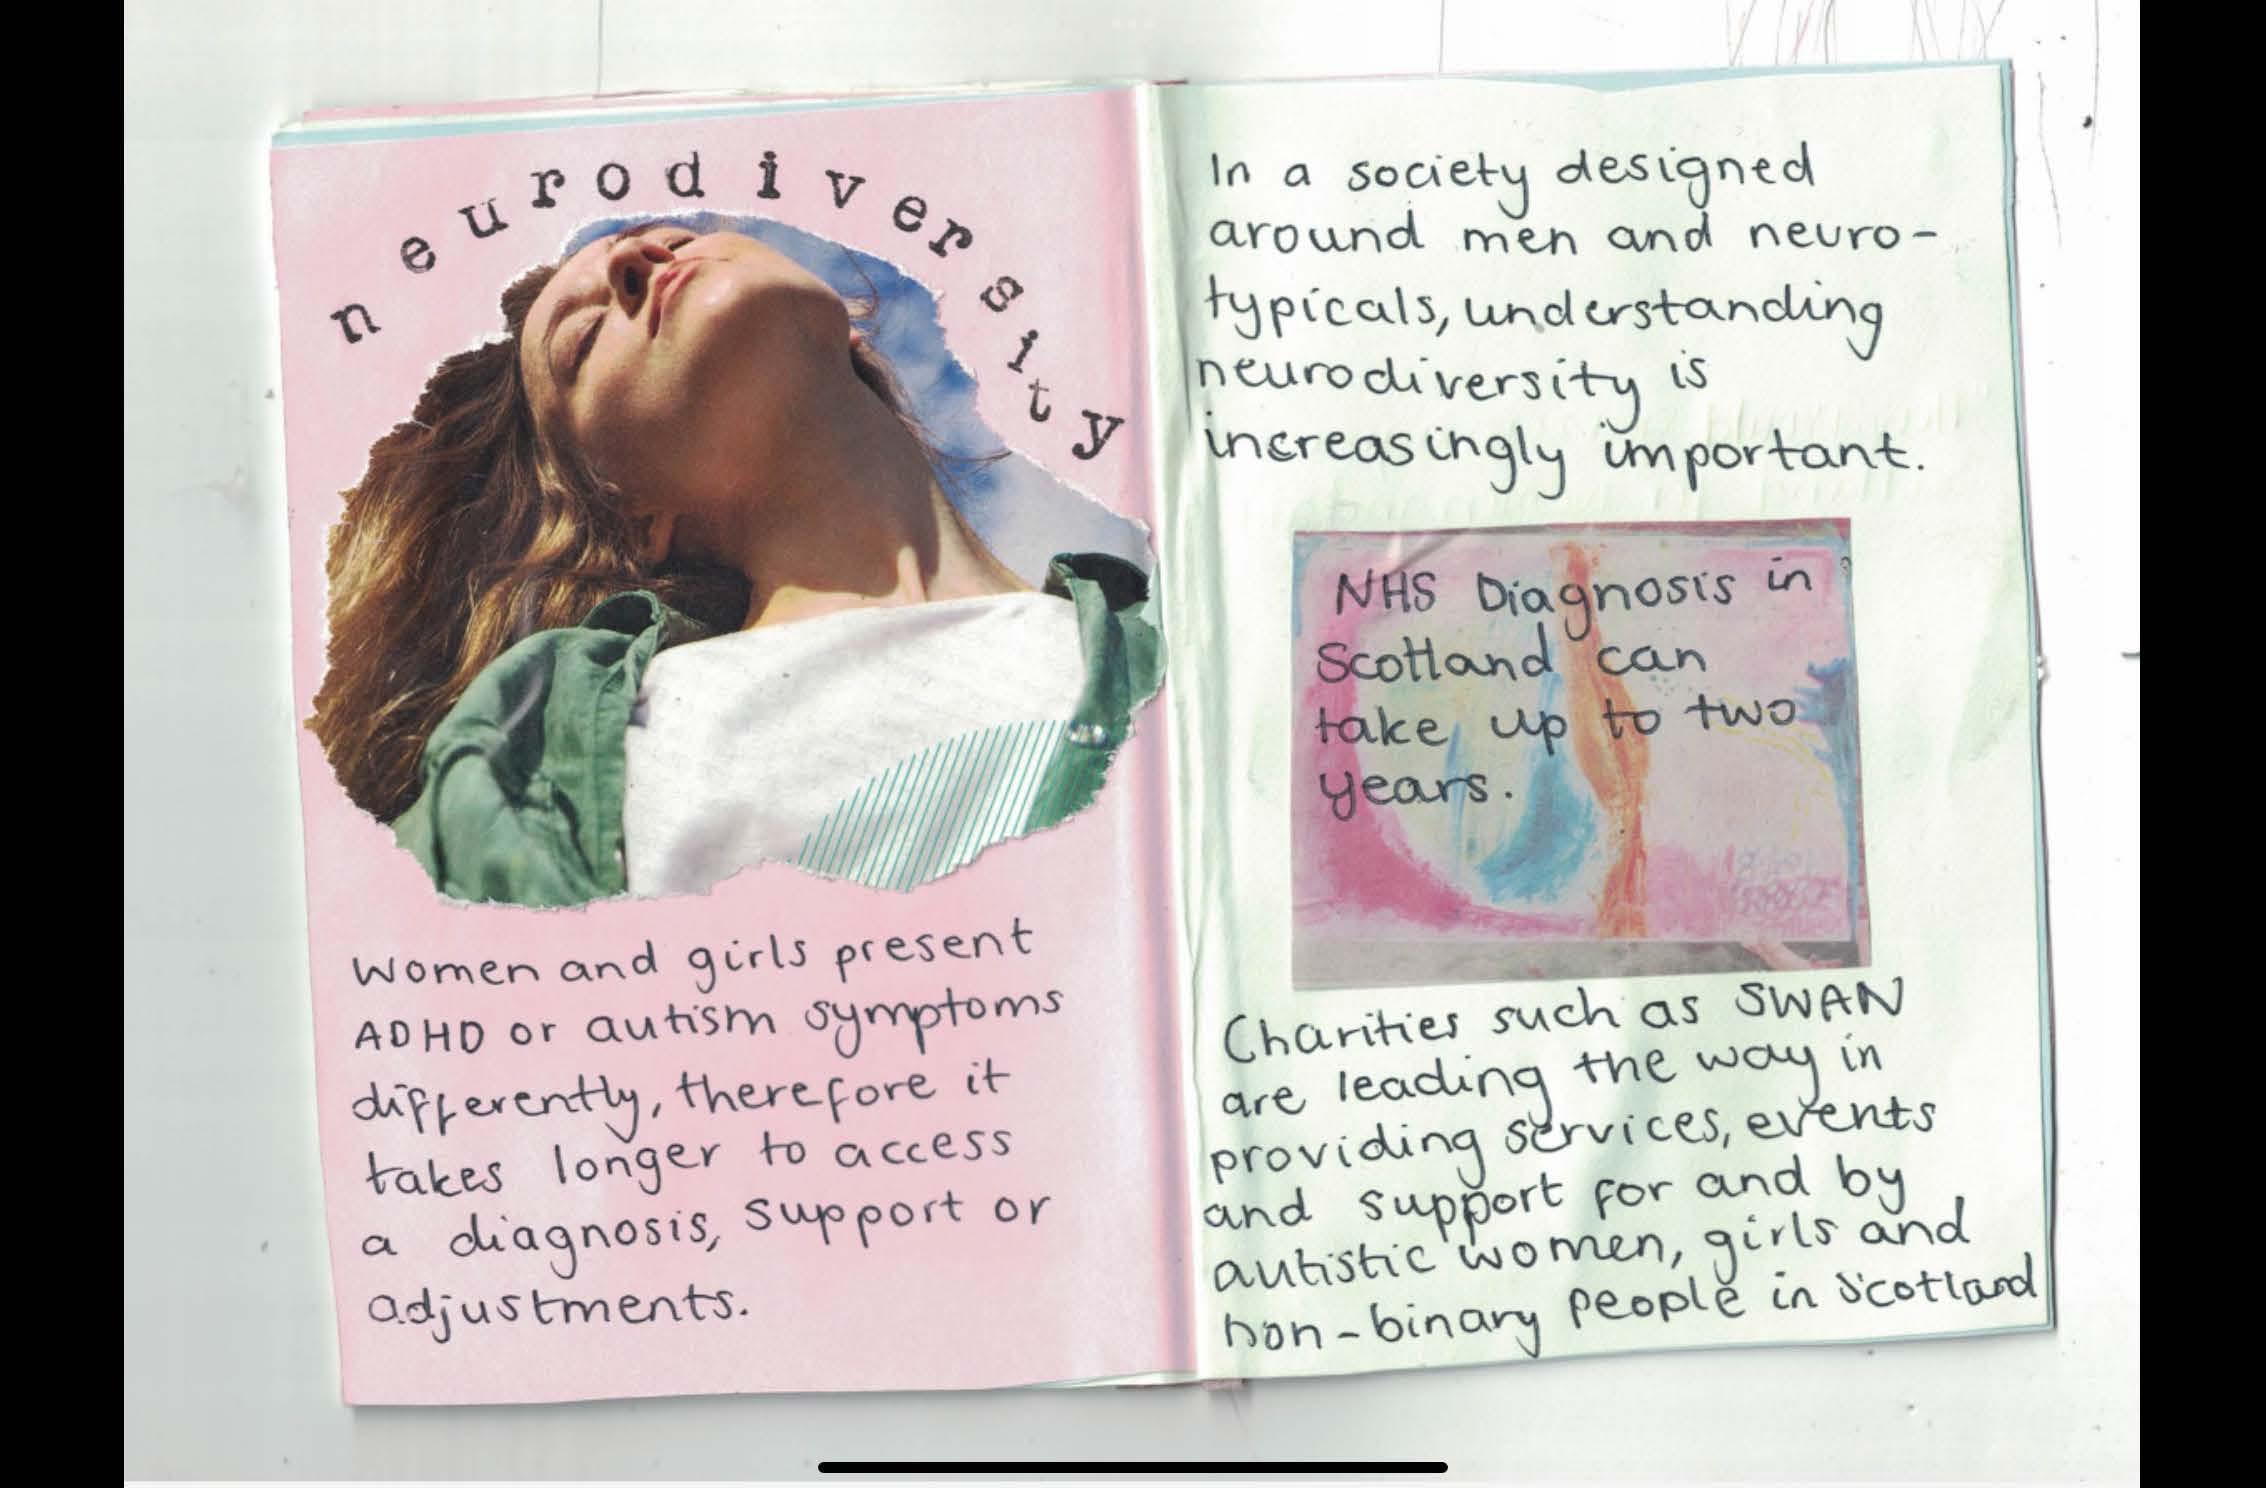 neurodiversity
Women and girls present
ADHD or autism symptoms
differently, therefore it
takes longer to access
a diagnosis, support or
adjustments.
In a society designed
around men and neuro-
typicals, understanding
neurodiversity is
increasingly important.
NHS Diagnosis in
Scotland can
take up to two
years.
Charities such as SWAN
are leading the way in
providing services, events
and support for and by
autistic women, girls and
non-binary people in Scotland